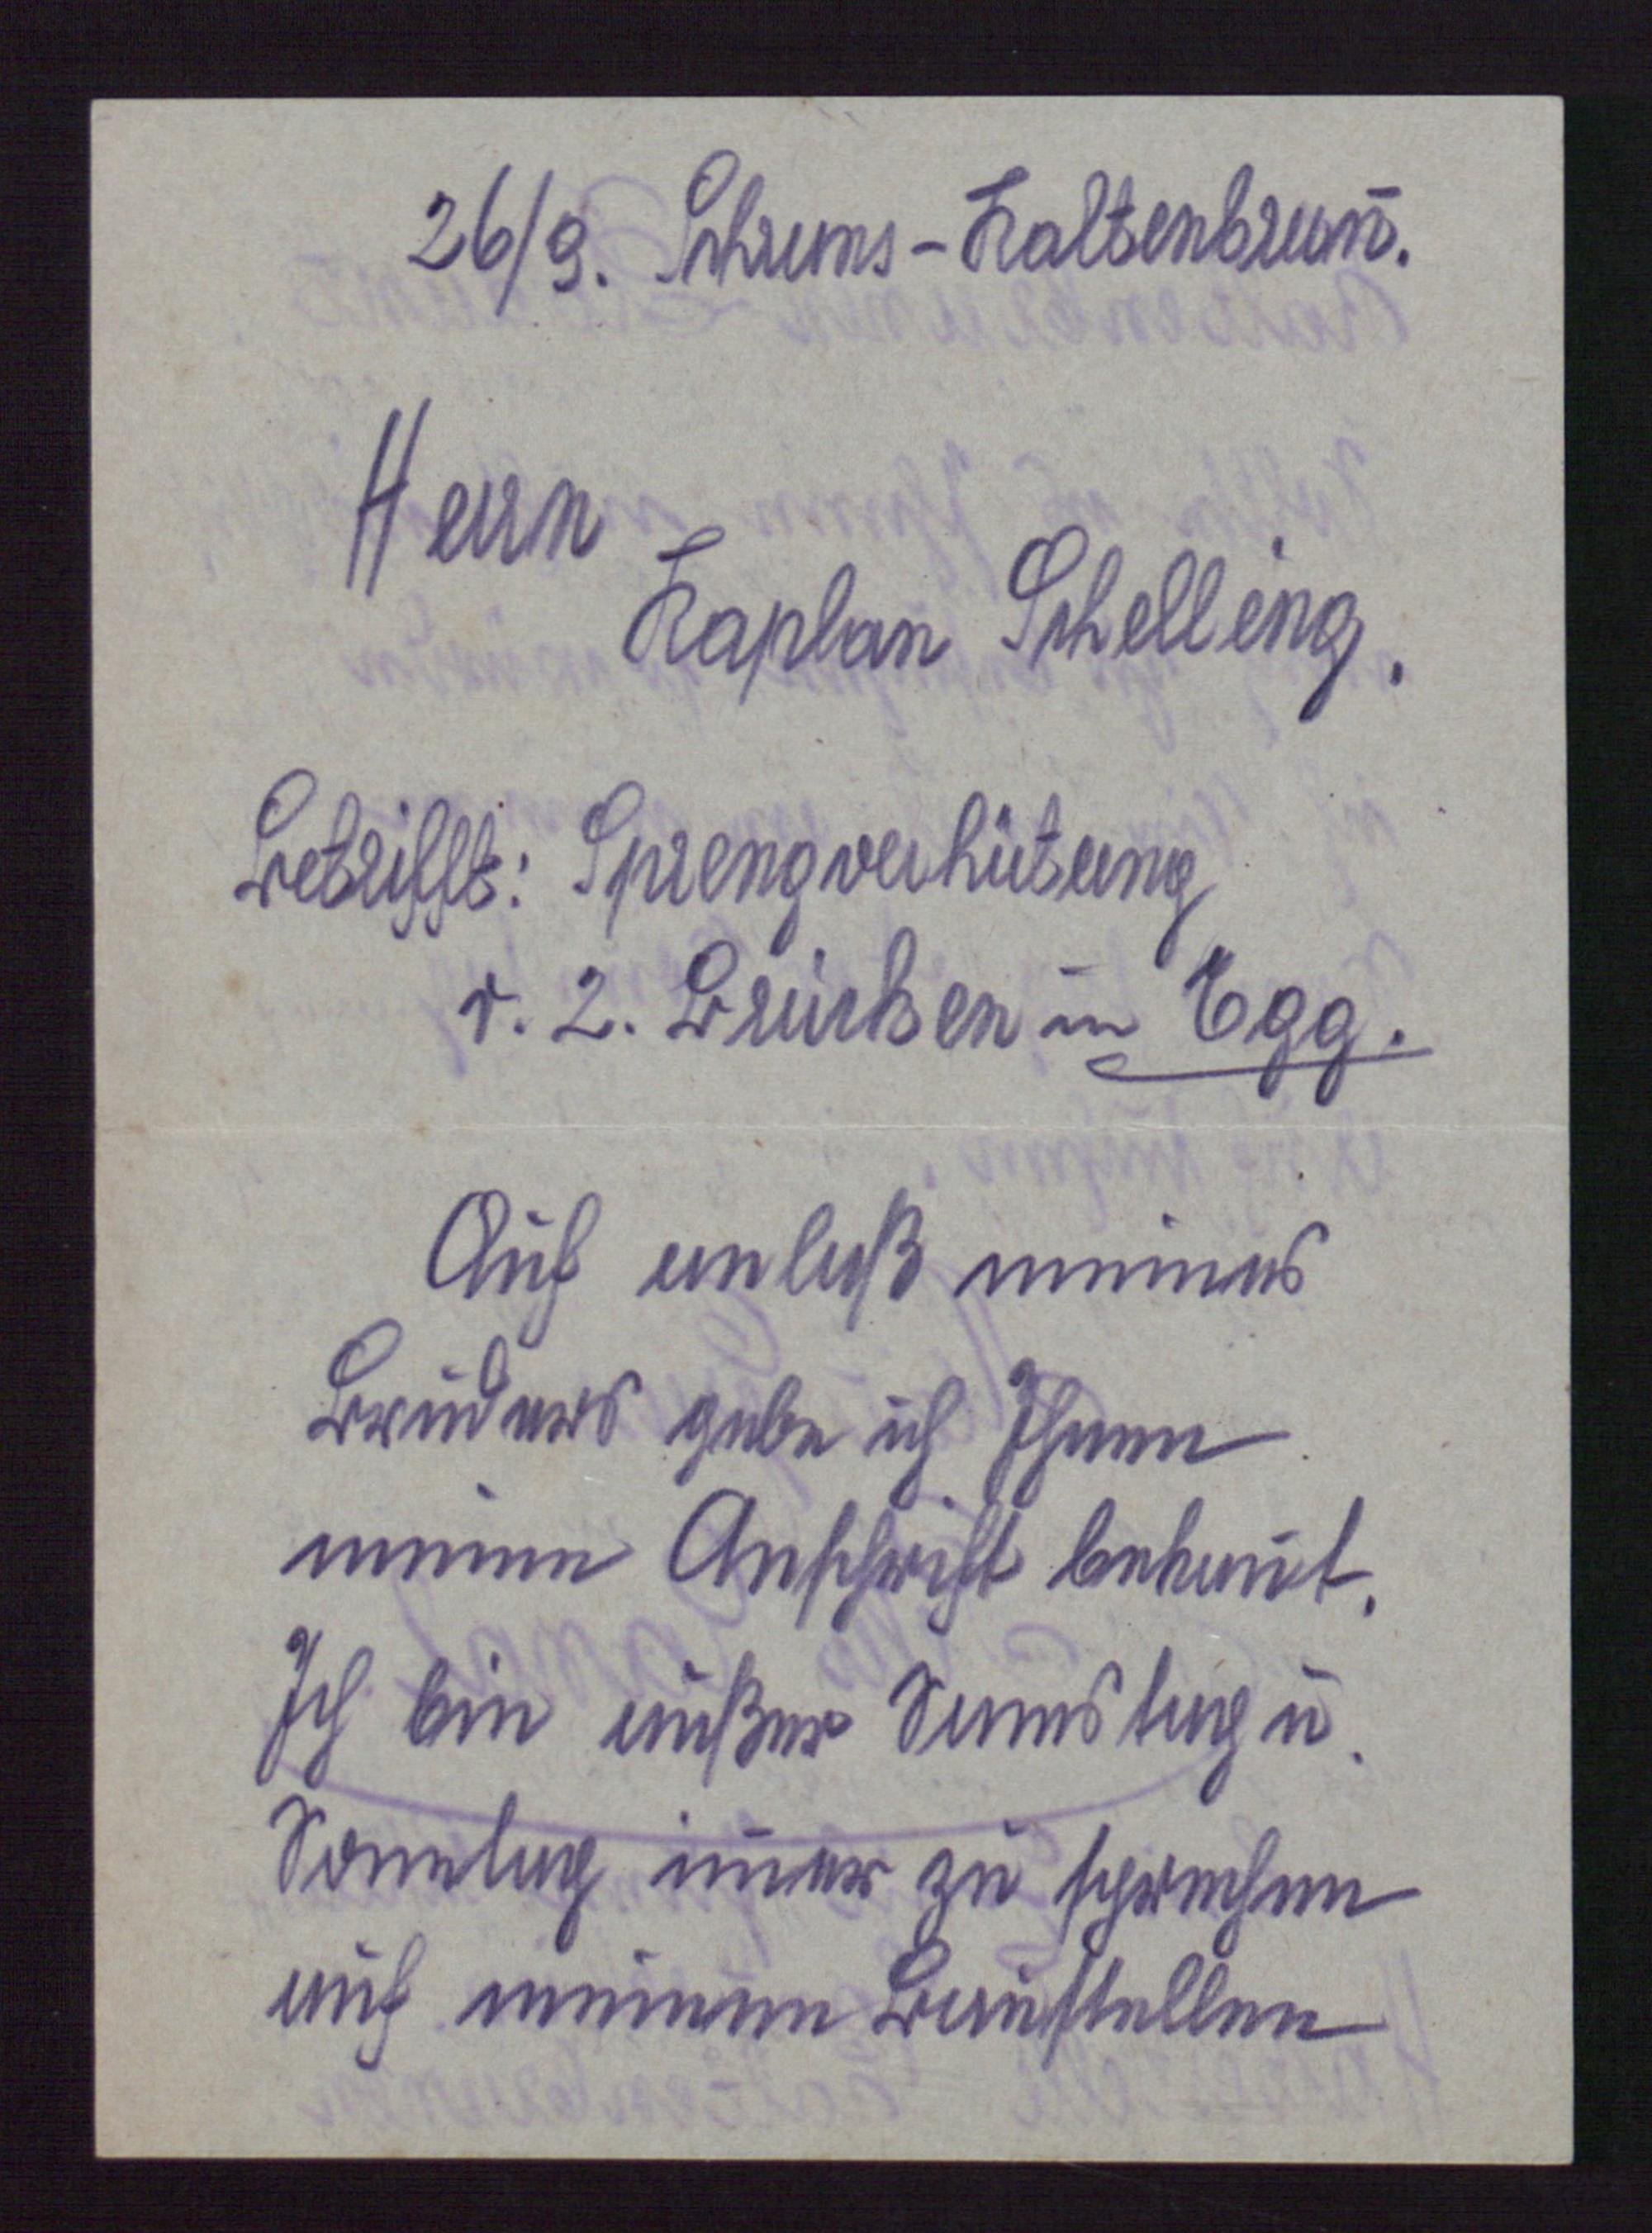 26/9. Schruns-Kaltenbrun̄.
Herrn
Kaplan Schelling.
Betrifft: Sprengverhütung
v. 2. Brücken in Egg.
Auf anlaß meines
Bruders gebe ich Ihnen
meine Anschrift bekan̄t.
Ich bin außer Samstag u.
Sonntag im̄er zu sprechen
auf meinen Baustellen